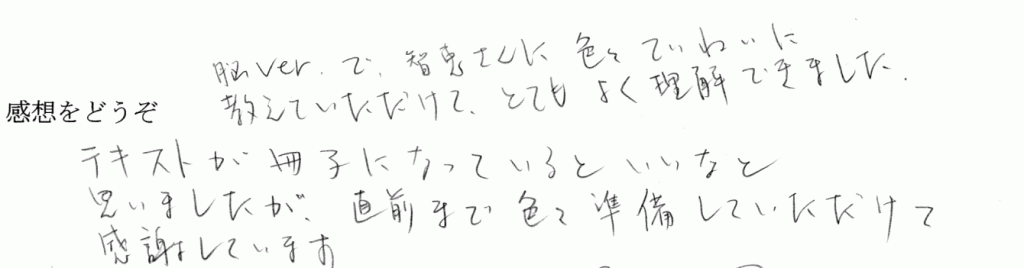 脳ver.で、智恵さんに色々ていねいに
教えていただけて、とてもよく理解できました。
感想をどうぞ
テキストが冊子になっているといいなと
思いましたが、直前まで色々準備していただけて
感謝しています